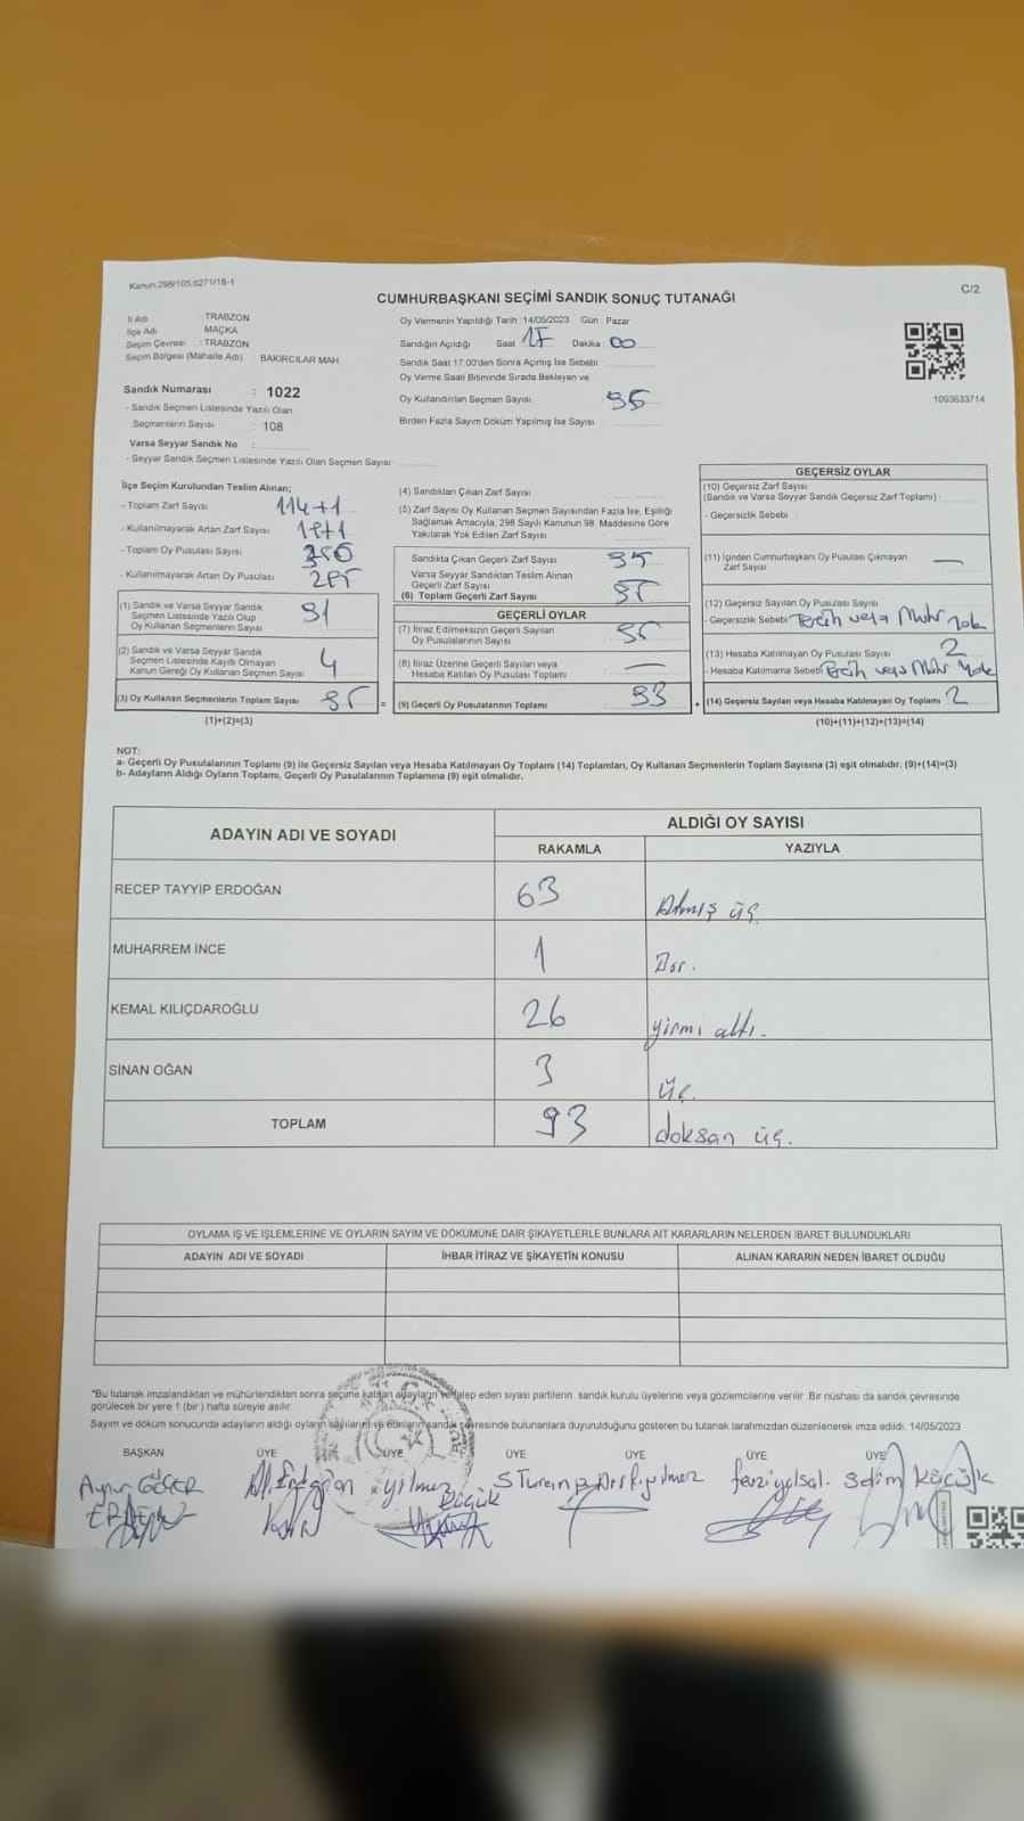 Kanun:298/105,6271/18-1
C/2
CUMHURBAŞKANI SEÇİMİ SANDIK SONUÇ TUTANAĞI
İl Adı : TRABZON
İlçe Adı : MAÇKA
Seçim Çevresi : TRABZON
Seçim Bölgesi (Mahalle Adı) : BAKIRCILAR MAH
Sandık Numarası : 1022
- Sandık Seçmen Listesinde Yazılı Olan
Seçmenlerin Sayısı : 108
Varsa Seyyar Sandık No :
- Seyyar Sandık Seçmen Listesinde Yazılı Olan Seçmen Sayısı
Oy Vermenin Yapıldığı Tarih : 14/05/2023 Gün : Pazar
Sandığın Açıldığı Saat : 17 Dakika : 00
Sandık Saat 17:00'den Sonra Açılmış İse Sebebi
Oy Verme Saati Bitiminde Sırada Bekleyen ve
Oy Kullandırılan Seçmen Sayısı 95
Birden Fazla Sayım Döküm Yapılmış İse Sayısı
1093633714
İlçe Seçim Kurulundan Teslim Alınan;
- Toplam Zarf Sayısı 114+1
- Kullanılmayarak Artan Zarf Sayısı
- Toplam Oy Pusulası Sayısı
- Kullanılmayarak Artan Oy Pusulası
(1) Sandık ve Varsa Seyyar Sandık
Seçmen Listesinde Yazılı Olup
Oy Kullanan Seçmenlerin Sayısı 91
(2) Sandık ve Varsa Seyyar Sandık
Seçmen Listesinde Kayıtlı Olmayan
Kanun Gereği Oy Kullanan Seçmen Sayısı 4
(3) Oy Kullanan Seçmenlerin Toplam Sayısı 95
(1)+(2)=(3)
(4) Sandıktan Çıkan Zarf Sayısı
(5) Zarf Sayısı Oy Kullanan Seçmen Sayısından Fazla İse, Eşitliği
Sağlamak Amacıyla, 298 Sayılı Kanunun 98. Maddesine Göre
Yakılarak Yok Edilen Zarf Sayısı
Sandıkta Çıkan Geçerli Zarf Sayısı 95
Varsa Seyyar Sandıktan Teslim Alınan
Geçerli Zarf Sayısı
(6) Toplam Geçerli Zarf Sayısı 95
GEÇERLİ OYLAR
(7) İtiraz Edilmeksizin Geçerli Sayılan
Oy Pusulalarının Sayısı 95
(8) İtiraz Üzerine Geçerli Sayılan veya
Hesaba Katılan Oy Pusulası Toplamı —
= (9) Geçerli Oy Pusulalarının Toplamı 93
GEÇERSİZ OYLAR
(10) Geçersiz Zarf Sayısı
(Sandık ve Varsa Seyyar Sandık Geçersiz Zarf Toplamı)
- Geçersizlik Sebebi
(11) İçinden Cumhurbaşkanı Oy Pusulası Çıkmayan
Zarf Sayısı —
(12) Geçersiz Sayılan Oy Pusulası Sayısı
- Geçersizlik Sebebi Tercih veya Mühr Yok
(13) Hesaba Katılmayan Oy Pusulası Sayısı 2
- Hesaba Katılmama Sebebi Tercih veya Mühr Yok
+ (14) Geçersiz Sayılan veya Hesaba Katılmayan Oy Toplamı 2
(10)+(11)+(12)+(13)=(14)
NOT:
a- Geçerli Oy Pusulalarının Toplamı (9) ile Geçersiz Sayılan veya Hesaba Katılmayan Oy Toplamı (14) Toplamları, Oy Kullanan Seçmenlerin Toplam Sayısına (3) eşit olmalıdır. (9)+(14)=(3)
b- Adayların Aldığı Oyların Toplamı, Geçerli Oy Pusulalarının Toplamına (9) eşit olmalıdır.
ADAYIN ADI VE SOYADI
ALDIĞI OY SAYISI
RAKAMLA YAZIYLA
RECEP TAYYİP ERDOĞAN 63 Altmış üç
MUHARREM İNCE 1 Bir.
KEMAL KILIÇDAROĞLU 26 yirmi altı.
SİNAN OĞAN 3 üç.
TOPLAM 93 doksan üç.
OYLAMA İŞ VE İŞLEMLERİNE VE OYLARIN SAYIM VE DÖKÜMÜNE DAİR ŞİKAYETLERLE BUNLARA AİT KARARLARIN NELERDEN İBARET BULUNDUKLARI
ADAYIN ADI VE SOYADI İHBAR İTİRAZ VE ŞİKAYETİN KONUSU ALINAN KARARIN NEDEN İBARET OLDUĞU
*Bu tutanak imzalandıktan ve mühürlendikten sonra seçime katılan adayların talep eden siyasi partilerin sandık kurulu üyelerine veya gözlemcilerine verilir. Bir nüshası da sandık çevresinde
görülecek bir yere 1 (bir) hafta süreyle asılır.
Sayım ve döküm sonucunda adayların aldığı oyların sayılarını ve bunların sandık çevresinde bulunanlara duyurulduğunu gösteren bu tutanak tarafımızdan düzenlenerek imza edildi. 14/05/2023
BAŞKAN ÜYE ÜYE ÜYE ÜYE ÜYE ÜYE
Selim Küçük